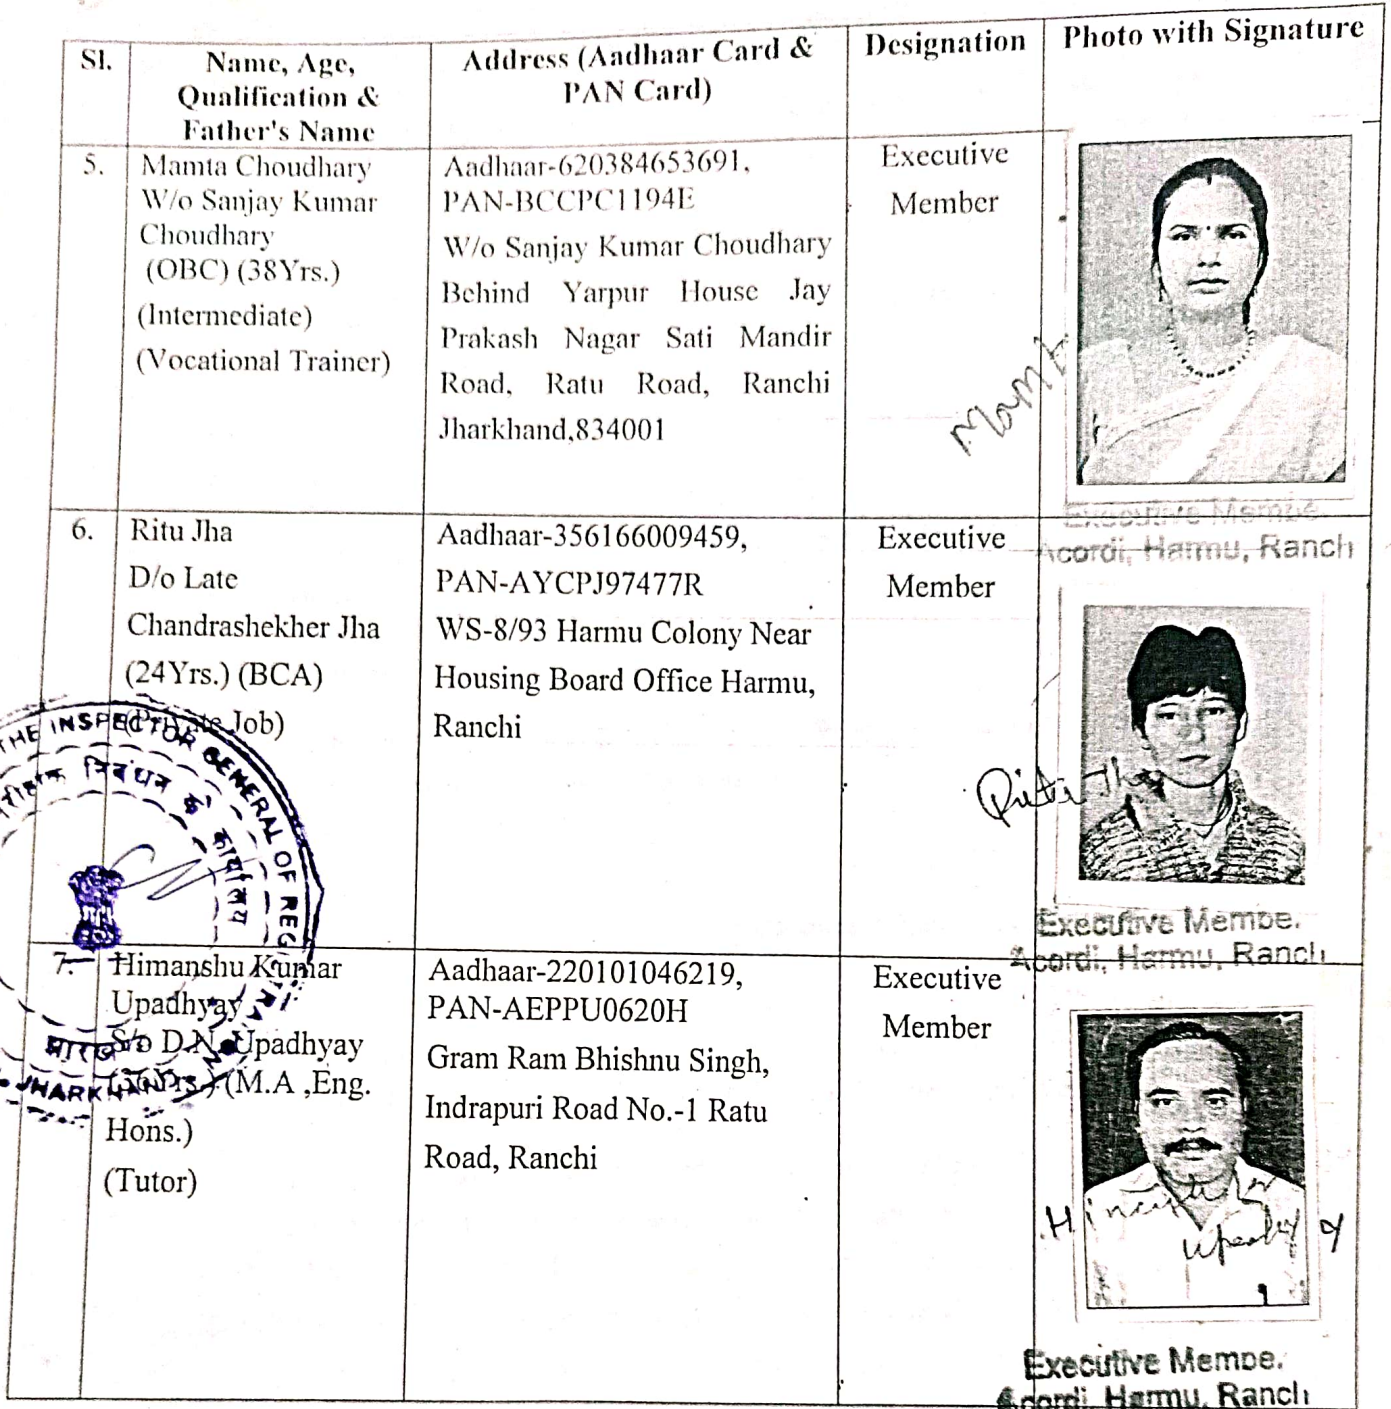 Sl.
Name, Age,
Qualification &
Father's Name
Address (Aadhaar Card &
PAN Card)
Designation
Photo with Signature
5.
Mamta Choudhary
W/o Sanjay Kumar
Choudhary
(OBC) (38Yrs.)
(Intermediate)
(Vocational Trainer)
Aadhaar-620384653691,
PAN-BCCPC1194E
W/o Sanjay Kumar Choudhary
Behind Yarpur House Jay
Prakash Nagar Sati Mandir
Road, Ratu Road, Ranchi
Jharkhand,834001
Executive
Member
Executive Membe
Acordi, Harmu, Ranch
6.
Ritu Jha
D/o Late
Chandrashekher Jha
(24Yrs.) (BCA)
(Private Job)
Aadhaar-356166009459,
PAN-AYCPJ97477R
WS-8/93 Harmu Colony Near
Housing Board Office Harmu,
Ranchi
Executive
Member
Ritu Jha
Executive Membe.
Acordi, Harmu, Ranch
7.
Himanshu Kumar
Upadhyay
S/o D.N. Upadhyay
(M.A ,Eng.
Hons.)
(Tutor)
Aadhaar-220101046219,
PAN-AEPPU0620H
Gram Ram Bhishnu Singh,
Indrapuri Road No.-1 Ratu
Road, Ranchi
Executive
Member
Executive Membe.
Acordi, Harmu, Ranchi
THE INSPECTOR GENERAL OF REGISTRATION
निबंधन के कार्यालय
JHARKHAND